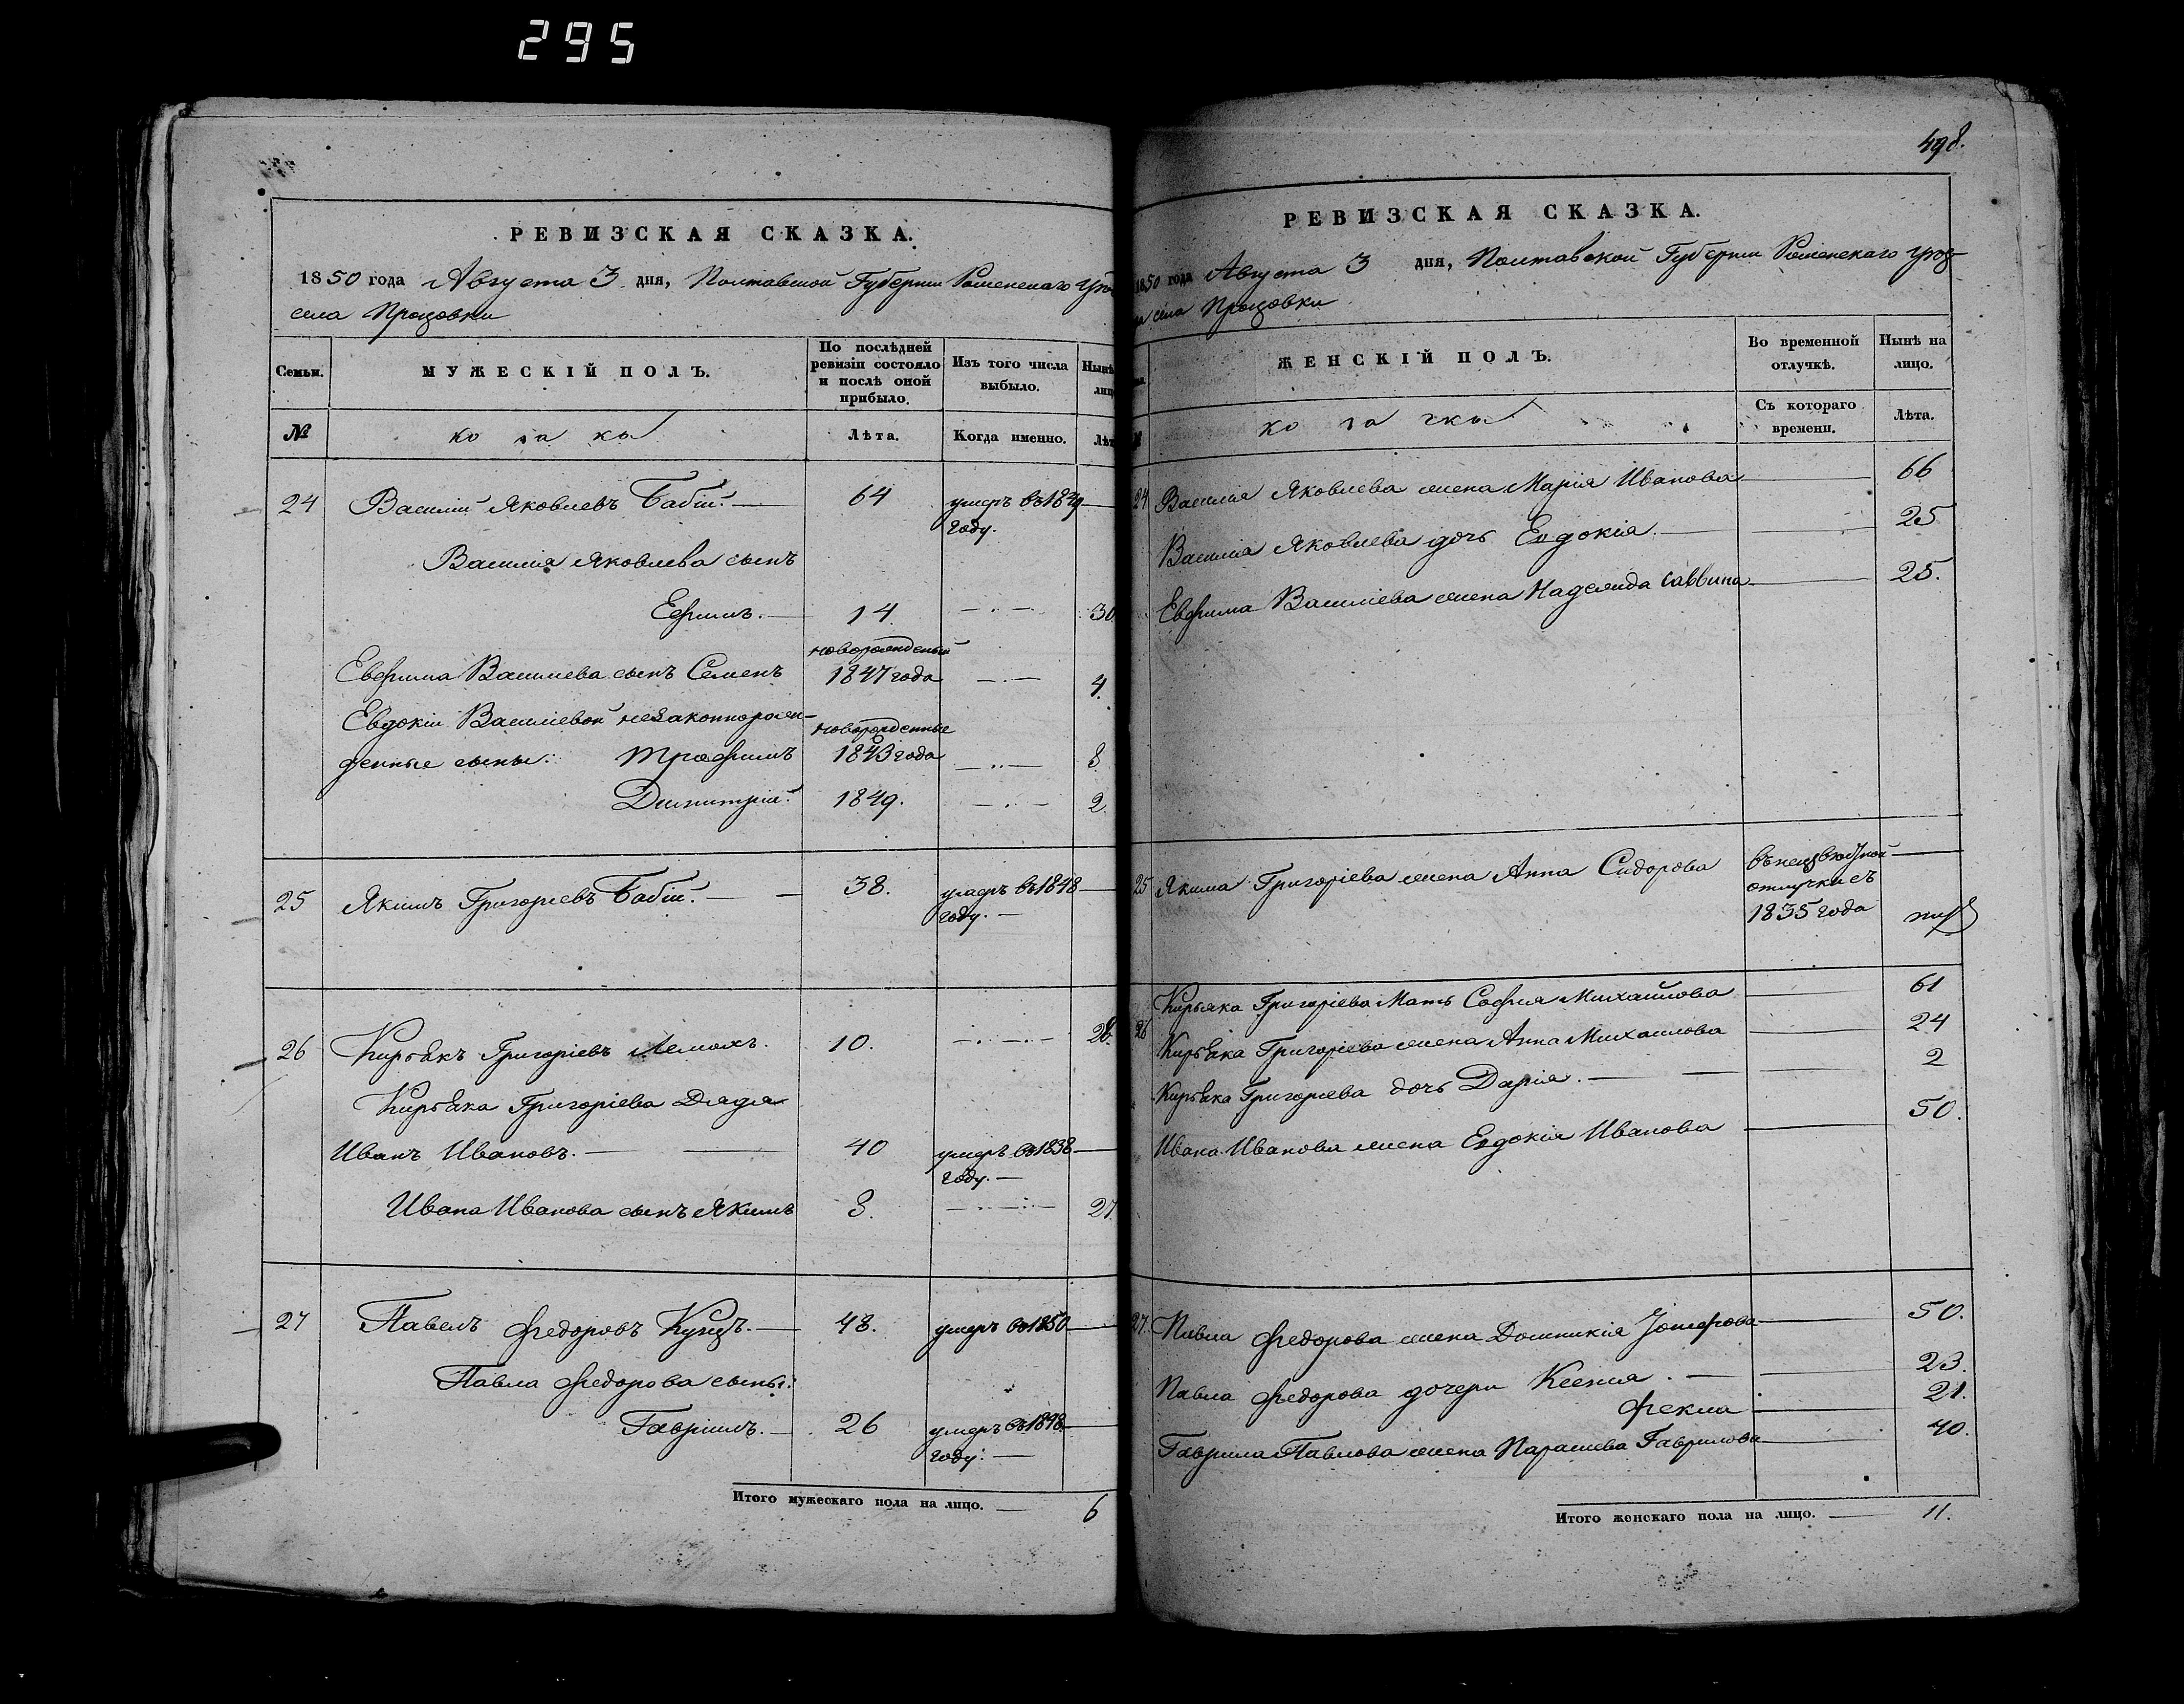 295
РЕВИЗСКАЯ СКАЗКА.
1850 года Августа 3 дня, Полтавской Губернии Роменскаго
села Процовки
Семьи.
МУЖЕСКІЙ ПОЛЪ.
По послѣдней ревизіи состояло и послѣ оной прибыло.
Изъ того числа выбыло.
Нынѣ
№
козаки
Лѣта.
Когда именно.
24 Василій Яковлевъ Бабій. 64 умеръ въ 1849
году.
Василія Яковлева сынъ
Ефимъ. 14 30
новорожденый
Евфима Василиева сынъ Семенъ 1847 года 4.
Евдокіи Василіевой незаконнорож-
новорожденные
денные сыны: Трофимъ 1843 года 8
Димитрій. 1849. 2
25 Якимъ Григоріевъ Бабій. 38. умеръ въ 1848
году.
26 Кирьякъ Григоріевъ Лемохъ. 10. 26.
Кирьяка Григоріева Дядя
Иванъ Ивановъ. 40 умеръ въ 1838
году.
Ивана Иванова сынъ Якимъ 8. 27.
27 Павелъ Федоровъ Куцъ. 48. умеръ въ 1850
Павла Федорова сыны:
Гавріилъ. 26 умеръ въ 1848
году.
Итого мужескаго пола на лицо. 6
498.
РЕВИЗСКАЯ СКАЗКА.
1850 года Августа 3 дня, Полтавской Губерніи Роменскаго уѣз-
да села Процовки
ЖЕНСКІЙ ПОЛЪ.
Во временной отлучкѣ.
Нынѣ на лицо.
козачки
Съ котораго времени.
Лѣта.
24 Василія Яковлева жена Марія Иванова 66
Василія Яковлева дочь Евдокія. 25
Евфима Василіева жена Надежда Саввина 25.
25 Якима Григоріева жена Анна Сидорова въ неизвѣстной
отлучкѣ съ
1835 года
Кирьяка Григоріева Мать София Михайлова 61
26 Кирьяка Григоріева жена Анна Михаилова 24
Кирьяка Григоріева дочь Дарія. 2
Ивана Иванова жена Евдокія Иванова 50.
27. Павла Федорова жена Домникія 50.
Павла Федорова дочери Ксенія. 23.
Фекла 21.
Гаврила Павлова жена Параскева Гаврилова 40.
Итого женскаго пола на лицо. 11.